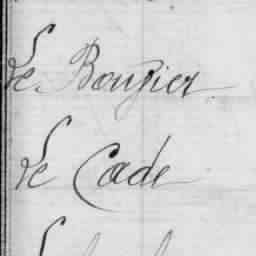 Le Bougier
Le Cade